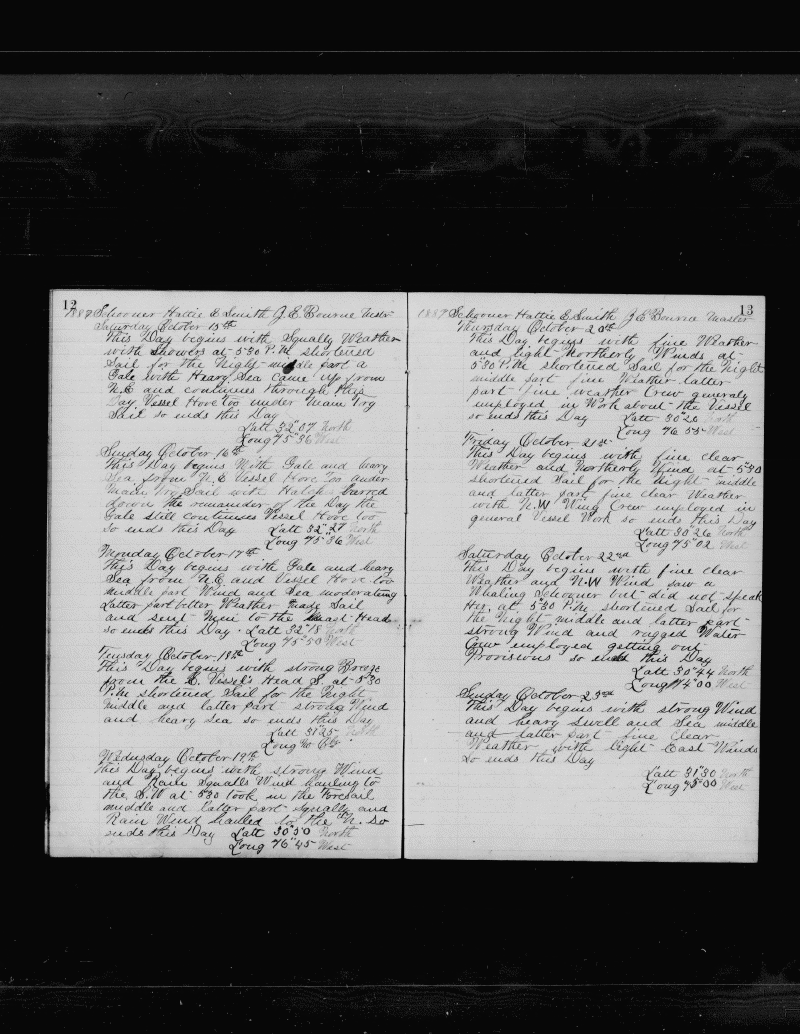 12
1887 Schooner Hattie E Smith J.E. Bourne Mstr
Saturday October 15th
This Day begins with Squally Weather
with Showers at 5.30 P.M. shortened
Sail for the Night middle part a
Gale with Heavy Sea came up from
N.E and continues through this
Day Vessel Hove too under Main Try
Sail so ends this Day
Latt 32°07 North
Long 75°36 West
Sunday October 16th
This Day begins With Gale and heavy
Sea from N.E Vessel Hove Too under
Main Try Sail with Hatch barred
down the remainder of the Day the
Gale still continues Vessel Hove too
so ends this Day Latt 32°27 North
Long 75°36 West
Monday October 17th
This Day begins with Gale and heavy
Sea from N.E. and Vessel Hove too
middle part Wind and Sea moderating
Latter part better Weather made Sail
and sent Men to the Mast Head
so ends this Day. Latt 32°18 North
Long 75°50 West
Tuesday October 18th
This Day begins with strong Breeze
from the E. Vessel's Head S. at 5.30
P.M. shortened Sail for the Night
middle and latter part strong Wind
and heavy Sea so ends this Day
Latt 31°25 North
Long
Wednesday October 19th
this Day begins with strong Wind
and Rain Squalls Wind hauling to
the S.W at 5.30 took in the Foresail
middle and latter part Squally and
Rain Wind hauled to the N. so
ends this Day Latt 30°50 North
Long 76°45 West
13
1887 Schooner Hattie E Smith J E Bourne Master
Thursday October 20th
This Day begins with fine Weather
and light Northerly Winds at
5.30 P.M. shortened Sail for the Night
middle part fine Weather latter
part fine weather Crew generaly
employed in Work about the Vessel
so ends this Day Latt 30°20 North
Long 76 55 West
Friday October 21st
This Day begins with fine clear
Weather and Northerly Wind at 5.30
shortened Sail for the Night middle
and latter part fine clear Weather
with N.W Wing Crew employed in
general Vessel Work so ends this Day
Latt 30°26 North
Long 75°02 West
Saturday October 22nd
This Day begins with fine clear
Weather and N-W Wind saw a
Whaling Schooner but did not speak
Her. at 5.30 P.M. shortened Sail for
the Night middle and latter part
strong Wind and rugged Water
Crew employed getting out
Provisions so ends this Day
Latt 30°44 North
Long 74°00 West
Sunday October 23rd
This Day begins with strong Wind
and heavy swell and Sea middle
and latter part fine clear
Weather with light East Winds
so ends this Day
Latt 31°30 North
Long 75°00 West